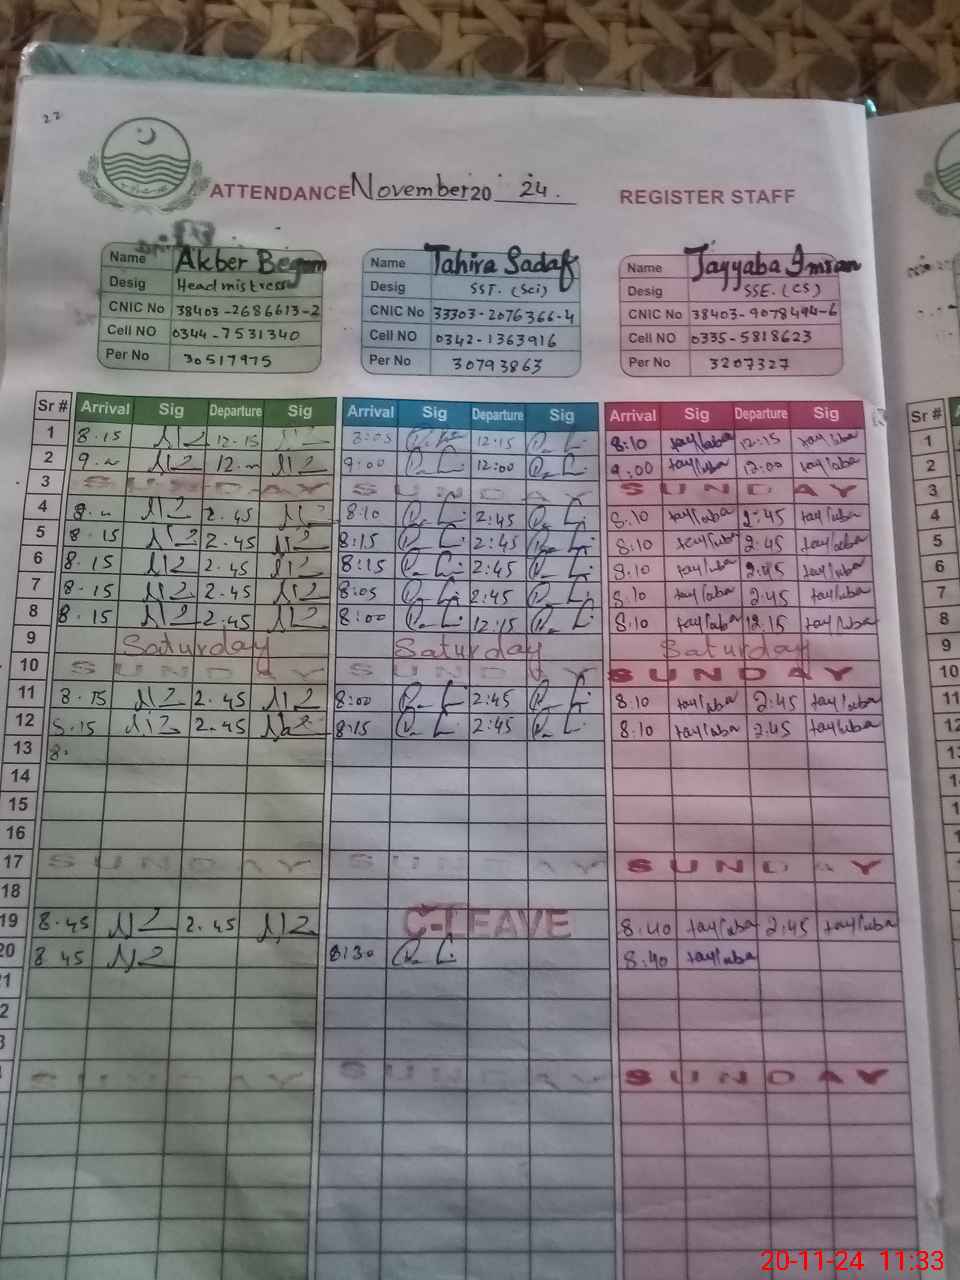 22
ATTENDANCE November 20 24. REGISTER STAFF
Name Akber Begum Name Tahira Sadaf Name Tayyaba Imran
Desig Headmistress Desig SST. (Sci) Desig SSE. (CS)
CNIC No 38403-2686613-2 CNIC No 33303-2076366-4 CNIC No 38403-9078494-6
Cell NO 0344-7531340 Cell NO 0342-1363916 Cell NO 0335-5818623
Per No 30517975 Per No 30793863 Per No 3207327
Sr # Arrival Sig Departure Sig Arrival Sig Departure Sig Arrival Sig Departure Sig
1 8.15 12.15 8:05 12:15 8:10 tayyaba 12:15 tayyaba
2 9. 12. 9:00 12:00 9:00 tayyaba 12:00 tayyaba
3 SUNDAY SUNDAY SUNDAY
4 2.45 8:10 2:45 8:10 tayyaba 2:45 tayyaba
5 8.15 2.45 8:15 2:45 8:10 tayyaba 2:45 tayyaba
6 8.15 2.45 8:15 2:45 8:10 tayyaba 2:45 tayyaba
7 8.15 2.45 8:05 2:45 8:10 tayyaba 2:45 tayyaba
8 8.15 2.45 8:00 12:15 8:10 tayyaba 12:15 tayyaba
9 Saturday Saturday Saturday
10 SUNDAY SUNDAY SUNDAY
11 8.15 2.45 8:00 2:45 8:10 tayyaba 2:45 tayyaba
12 8.15 2.45 8:15 2:45 8:10 tayyaba 2:45 tayyaba
13 8.
14
15
16
17 SUNDAY SUNDAY SUNDAY
18
19 8.45 2.45 C-LEAVE 8:40 tayyaba 2:45 tayyaba
20 8.45 8:30 8:40 tayyaba
21
2
3
SUNDAY SUNDAY SUNDAY
20-11-24 11:33